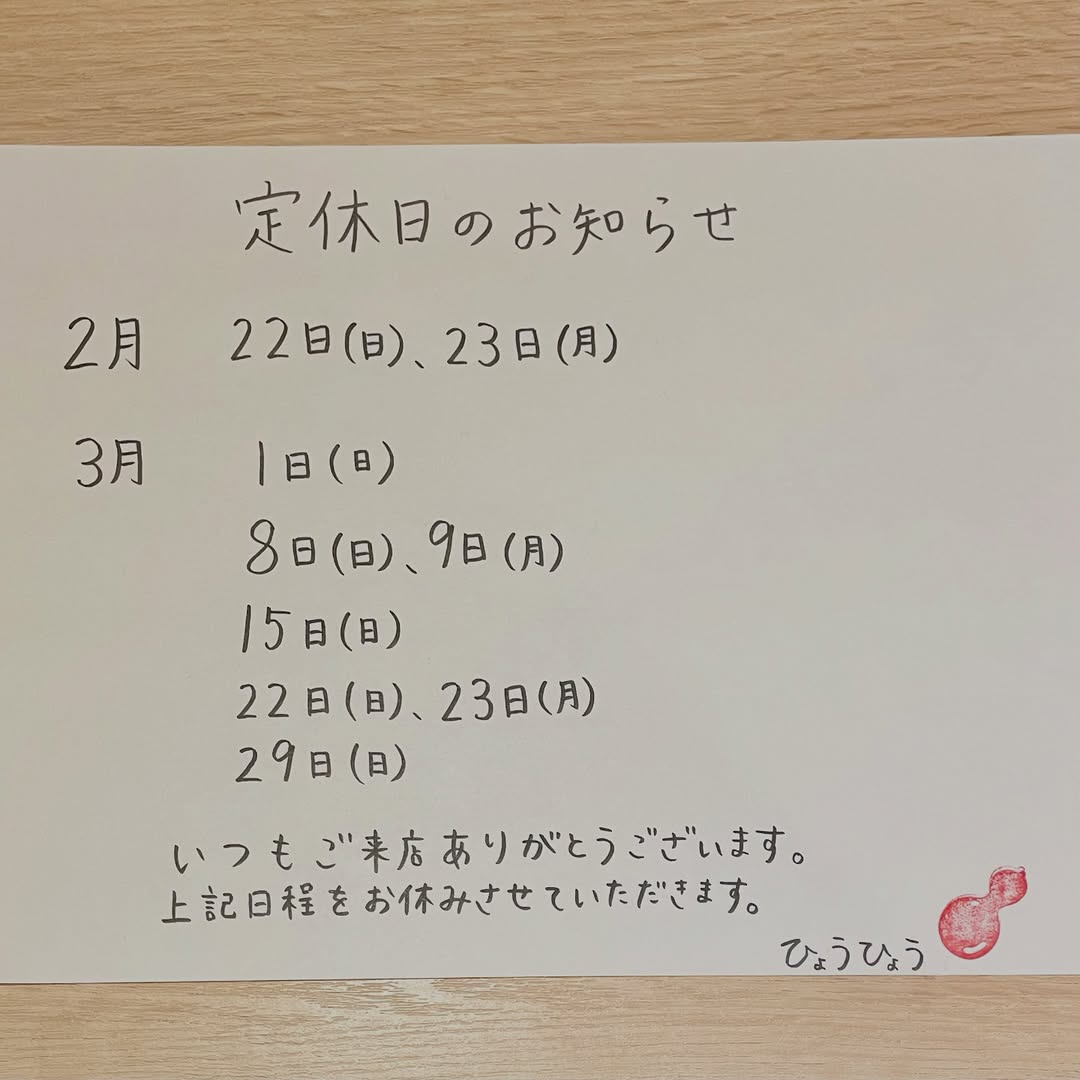 定休日のお知らせ
2月 22日(日)、23日(月)
3月 1日(日)
8日(日)、9日(月)
15日(日)
22日(日)、23日(月)
29日(日)
いつもご来店ありがとうございます。
上記日程をお休みさせていただきます。
ひょうひょう